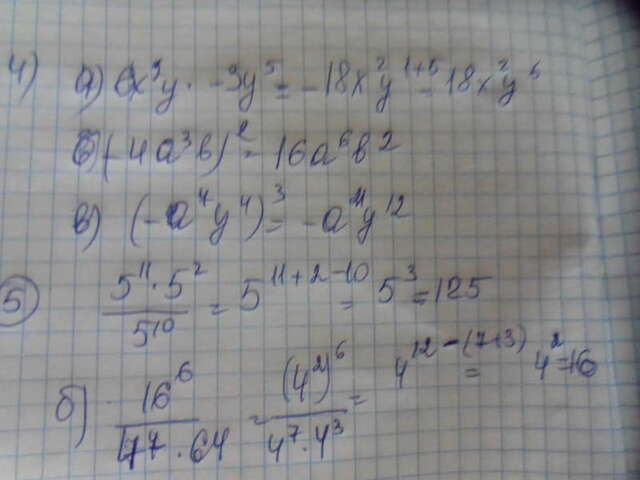 4) а) 6x³y · -3y⁵ = -18x²y¹⁺⁵ = 18x²y⁶
б) (-4a³b)² = 16a⁶b²
в) (-a⁴y⁴)³ = -a¹¹y¹²
5 5¹¹·5²/5¹⁰ = 5¹¹⁺²⁻¹⁰ = 5³ = 125
б) 16⁶/4⁷·64 = (4²)⁶/4⁷·4³ = 4¹²⁻⁽⁷⁺³⁾ = 4² = 16